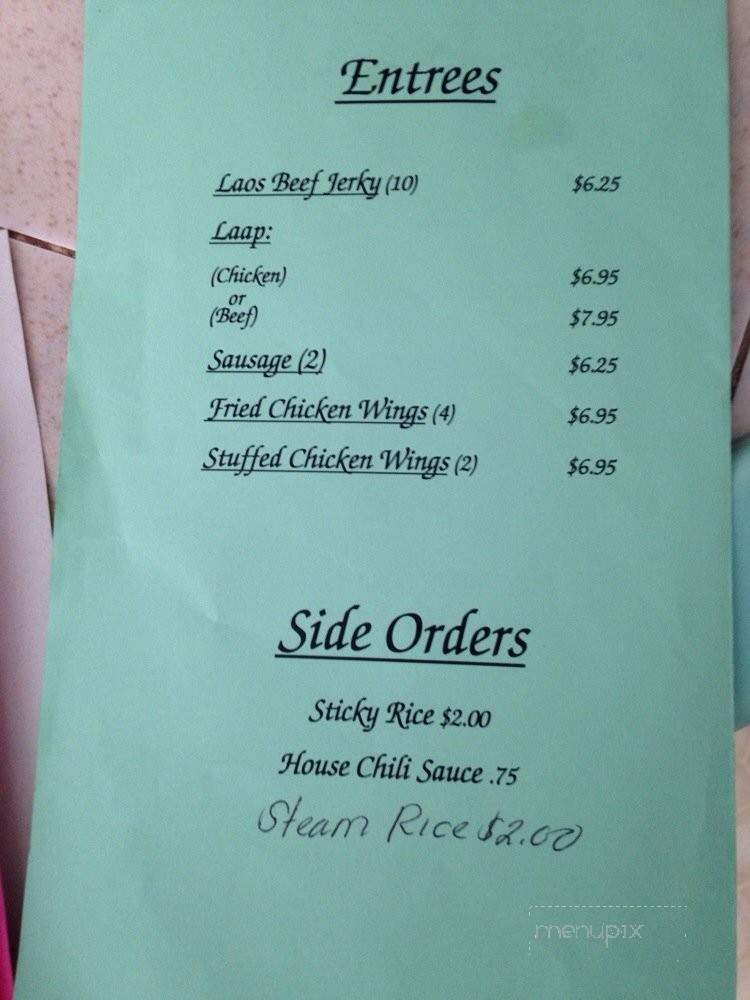 Entrees
Laos Beef Jerky (10) $6.25
Laap:
(Chicken) $6.95
or
(Beef) $7.95
Sausage (2) $6.25
Fried Chicken Wings (4) $6.95
Stuffed Chicken Wings (2) $6.95
Side Orders
Sticky Rice $2.00
House Chili Sauce .75
Steam Rice $2.00
menupix